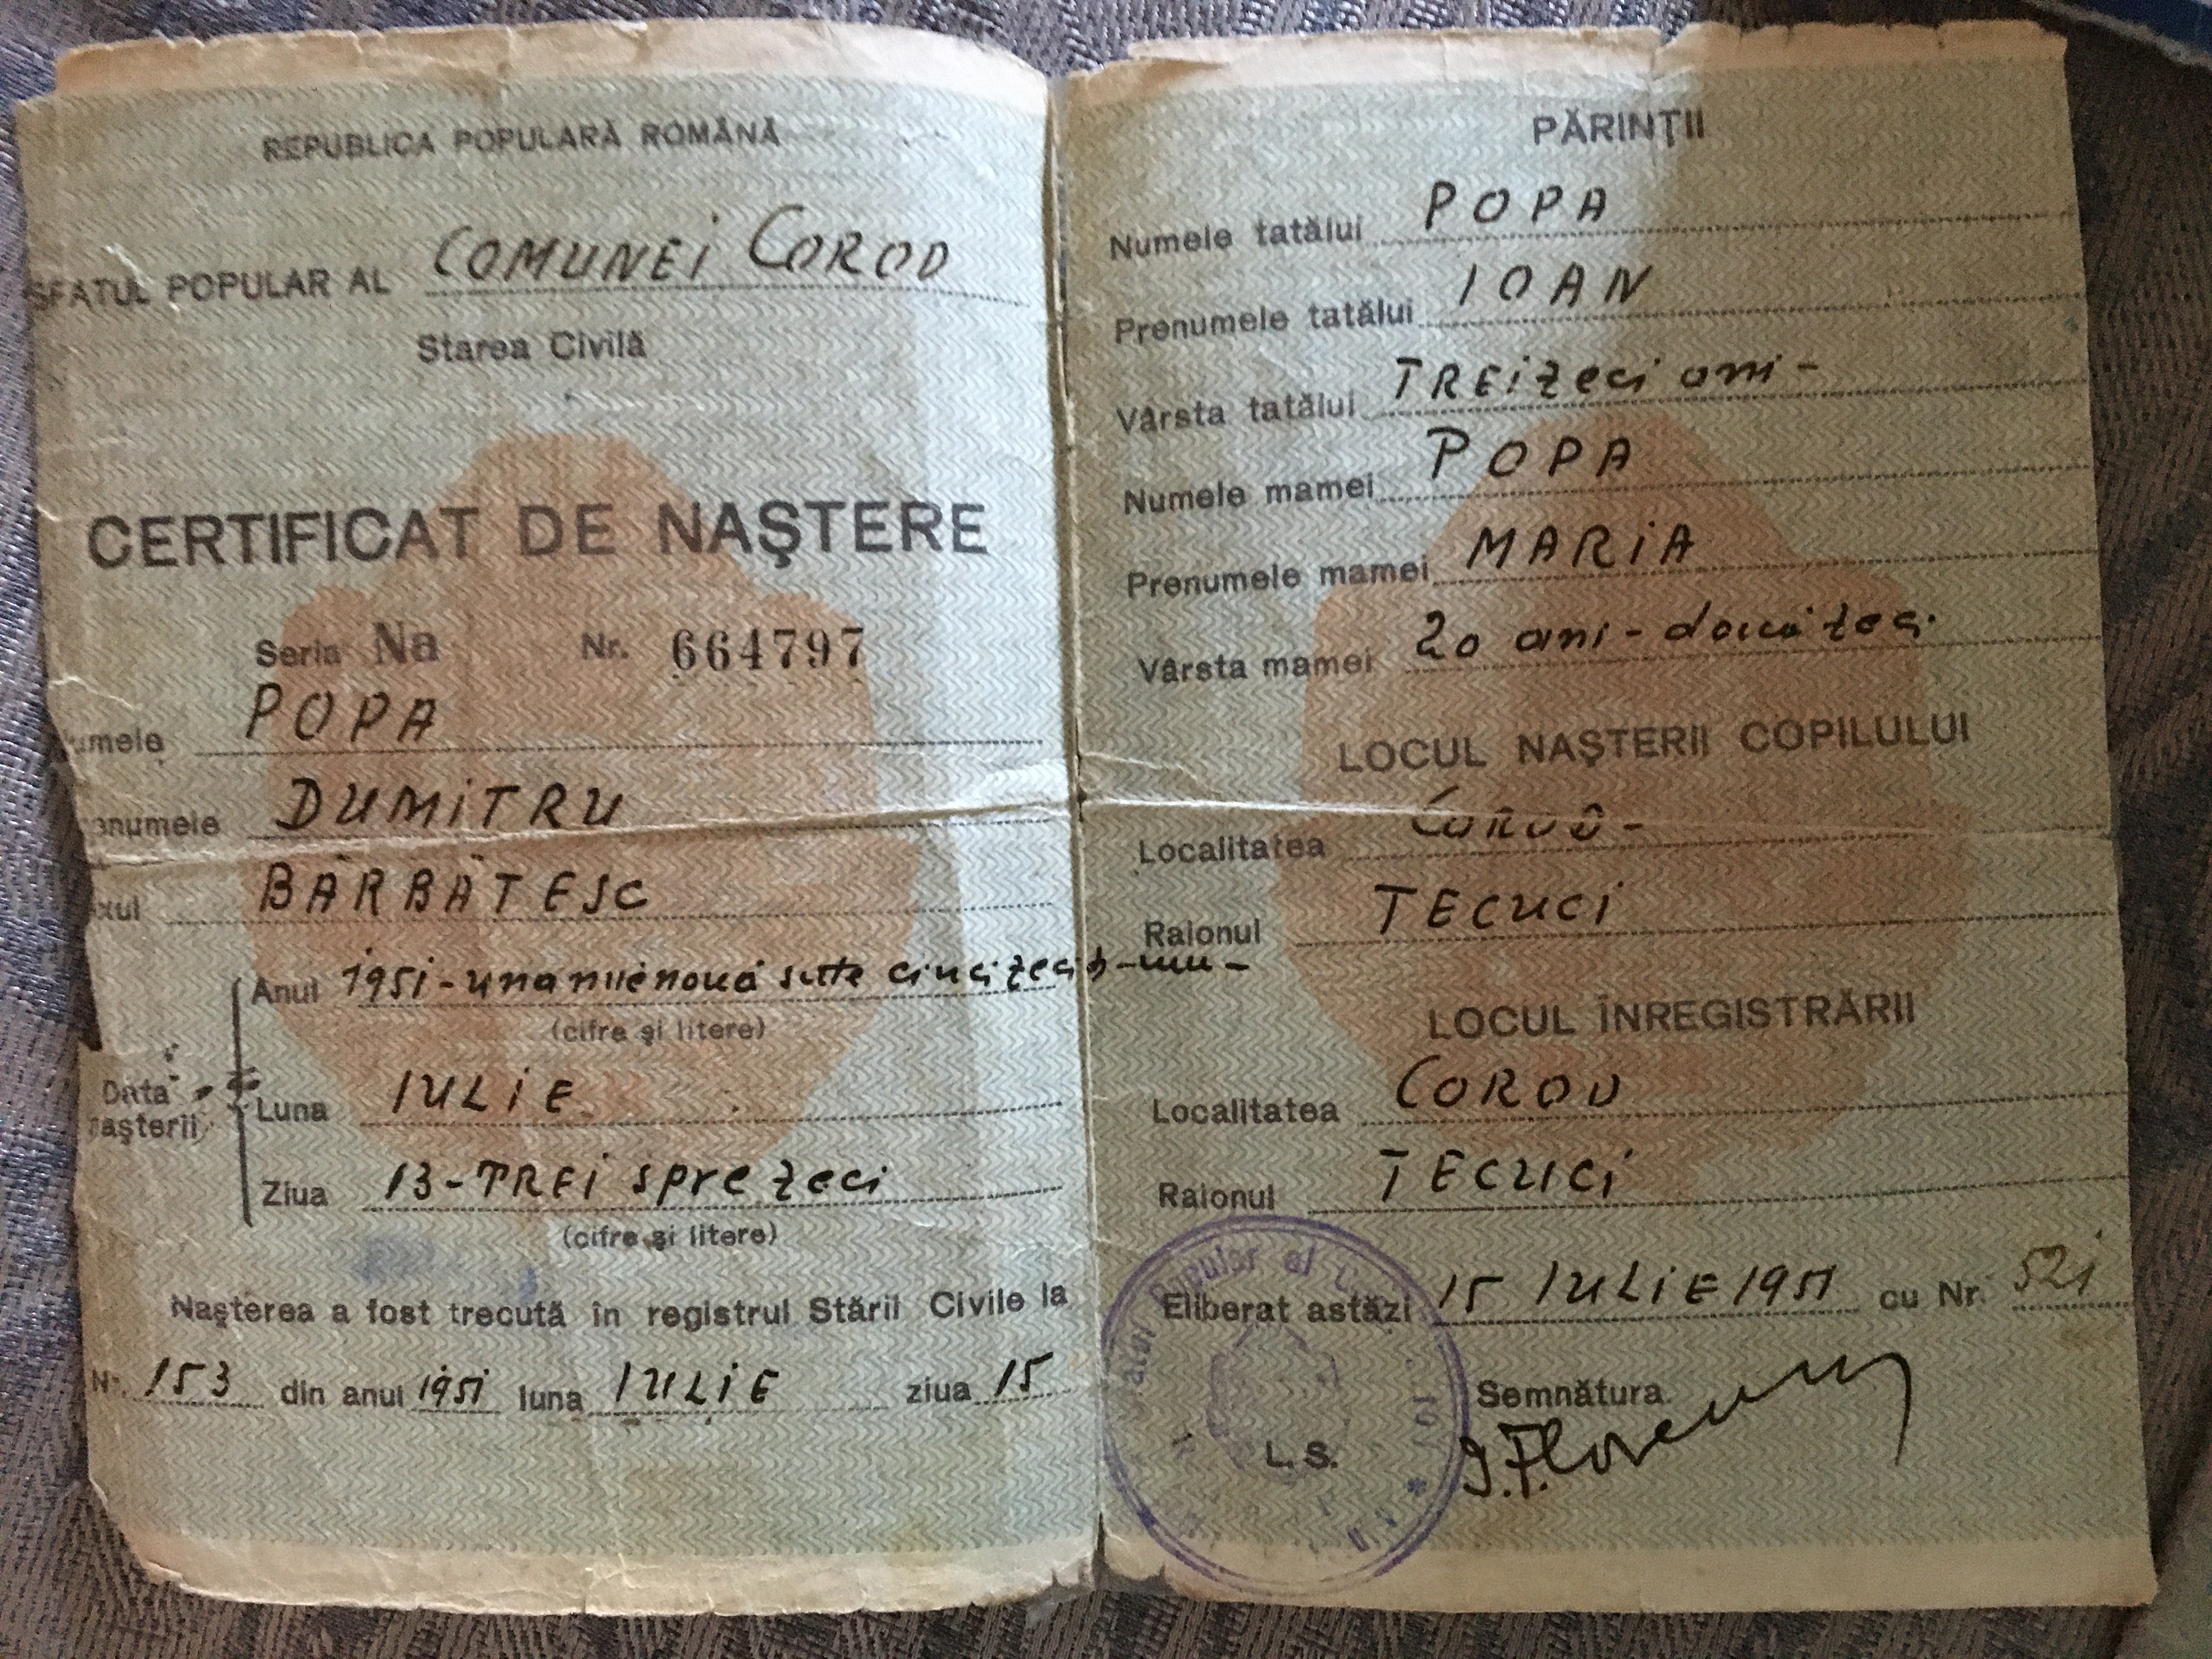 REPUBLICA POPULARĂ ROMÂNĂ
SFATUL POPULAR AL COMUNEI COROD
Starea Civilă
CERTIFICAT DE NAŞTERE
Seria Na Nr. 664797
umele POPA
enumele DUMITRU
xul BĂRBĂTESC
Anul 1951 - una mie nouă sute cinci zeci
(cifre şi litere)
Data naşterii
Luna IULIE
Ziua 13 - TREI spre zeci
(cifre şi litere)
Naşterea a fost trecută în registrul Stării Civile la
Nr. 153 din anul 1951 luna IULIE ziua 15
PĂRINŢII
Numele tatălui POPA
Prenumele tatălui IOAN
Vârsta tatălui TREIzeci ani -
Numele mamei POPA
Prenumele mamei MARIA
Vârsta mamei 20 ani - douăzeci
LOCUL NAŞTERII COPILULUI
Localitatea COROD -
Raionul TECUCI
LOCUL ÎNREGISTRĂRII
Localitatea COROD
Raionul TECUCI
Popular al
Eliberat astăzi 15 IULIE 1951 cu Nr. 521
Semnătura
L. S.